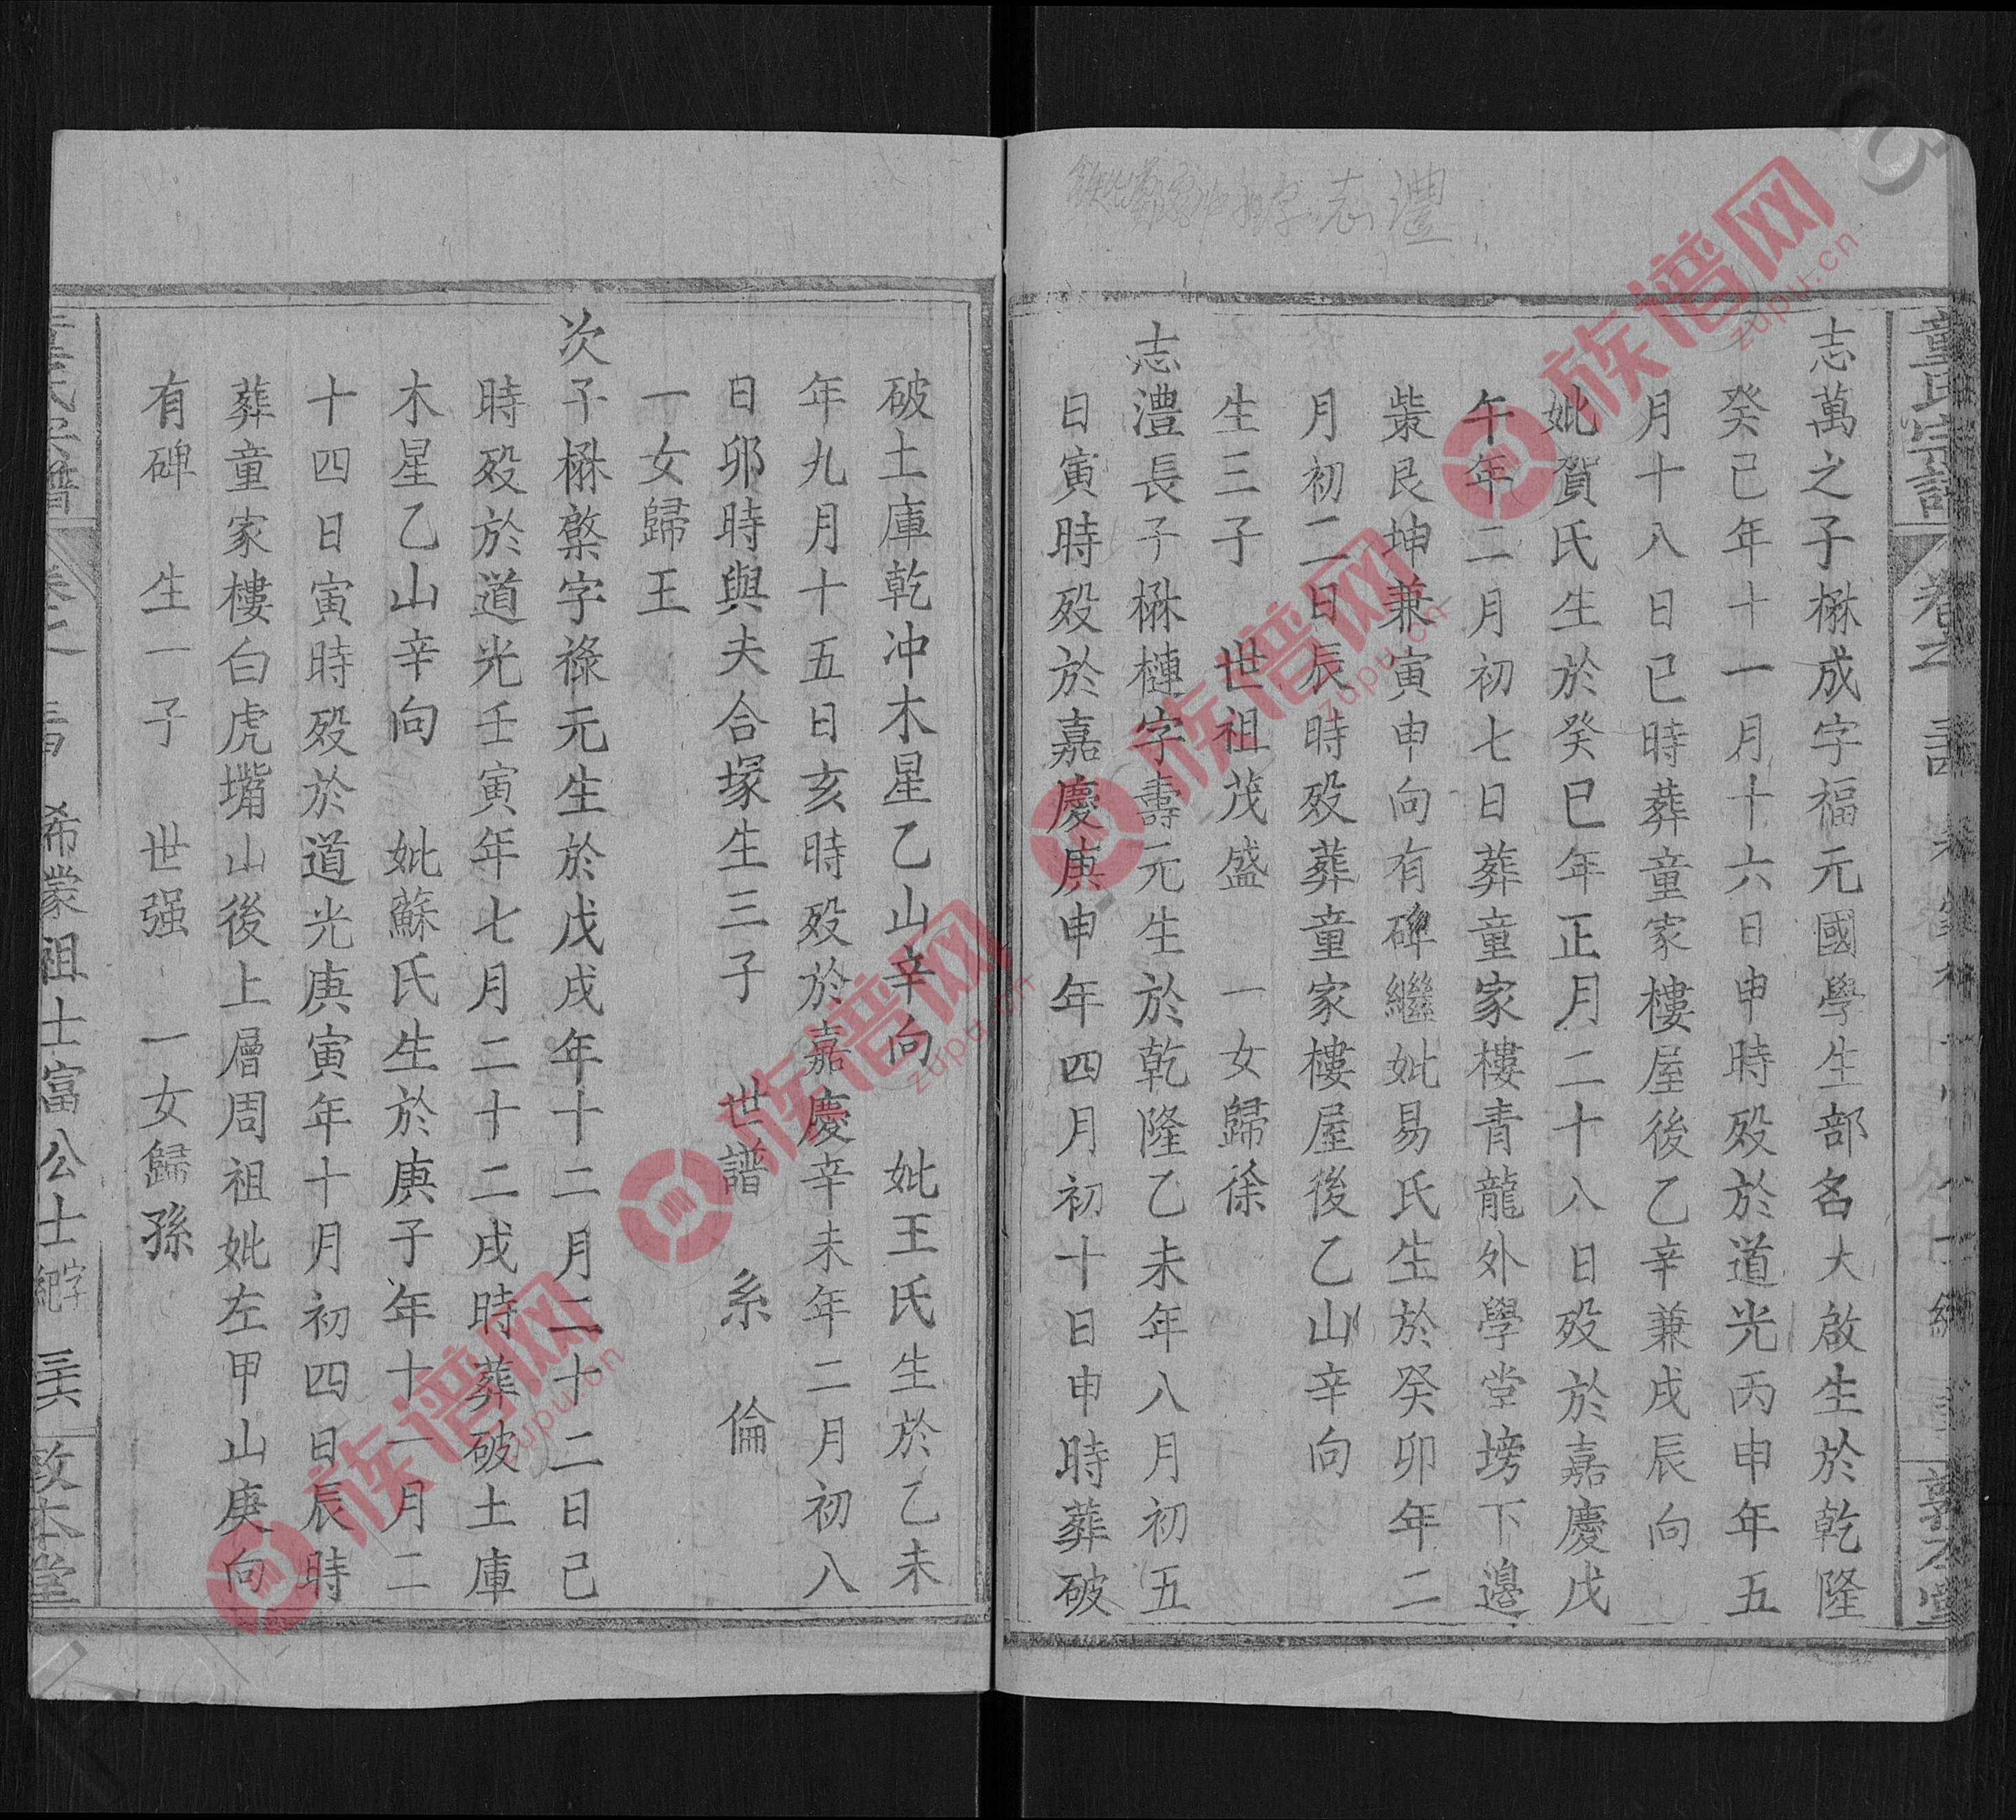 志澧
志萬之子楙成字福元國學生部名大啟生於乾隆
癸已年十一月十六日申時殁於道光丙申年五
月十八日已時葬童家樓屋後乙辛兼戌辰向
妣賀氏生於癸巳年正月二十八日殁於嘉慶戊
午年二月初七日葬童家樓青龍外學堂塝下邊
柴艮坤兼寅申向有碑繼妣易氏生於癸卯年二
月初二日辰時殁葬童家樓屋後乙山辛向
生三子 世祖茂盛 一女歸徐
志澧長子楙槤字壽元生於乾隆乙未年八月初五
日寅時殁於嘉慶庚申年四月初十日申時葬破
破土庫乾冲木星乙山辛向 妣王氏生於乙未
年九月十五日亥時殁於嘉慶辛未年二月初八
日卯時與夫合塚生三子 世譜 系 倫
一女歸王
次子楙棨字祿元生於戊戌年十二月二十二日已
時殁於道光壬寅年七月二十二戌時葬破土庫
木星乙山辛向 妣蘇氏生於庚子年十一月二
十四日寅時殁於道光庚寅年十月初四日辰時
葬童家樓白虎嘴山後上層周祖妣左甲山庚向
有碑 生一子 世强 一女歸孫
希蒙祖士富公士 字 敦本堂
族谱网
zupu.cn
族谱网
zupu.cn
族谱网
zupu.cn
族谱网
zupu.cn
族谱网
zupu.cn